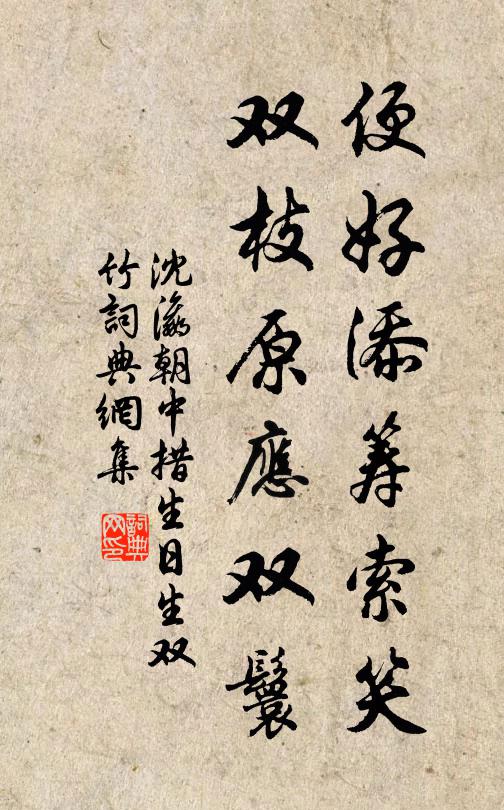 便好添筹索笑
双枝原應双鬟
沈瀛朝中措生日生双
竹詞典網集
詞典网印